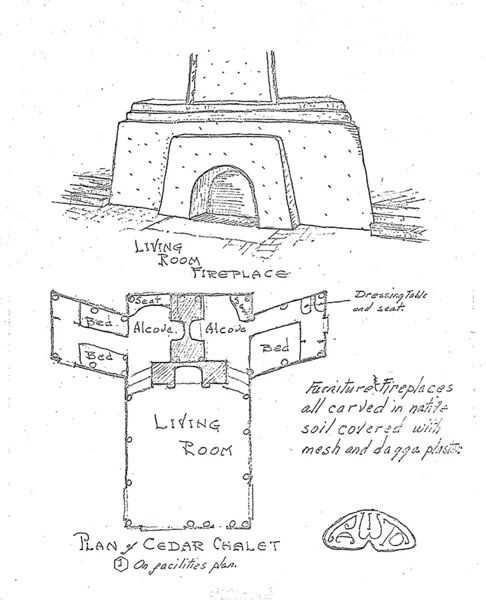 LIVING
ROOM
FIREPLACE
Seat
Dressing Table
and seat.
Bed
Alcove
Alcove
Bed
Bed
LIVING
ROOM
Furniture & Fireplaces
all carved in native
soil covered with
mesh and dagga plaster
PLAN of CEDAR CHALET
1 On facilities plan.